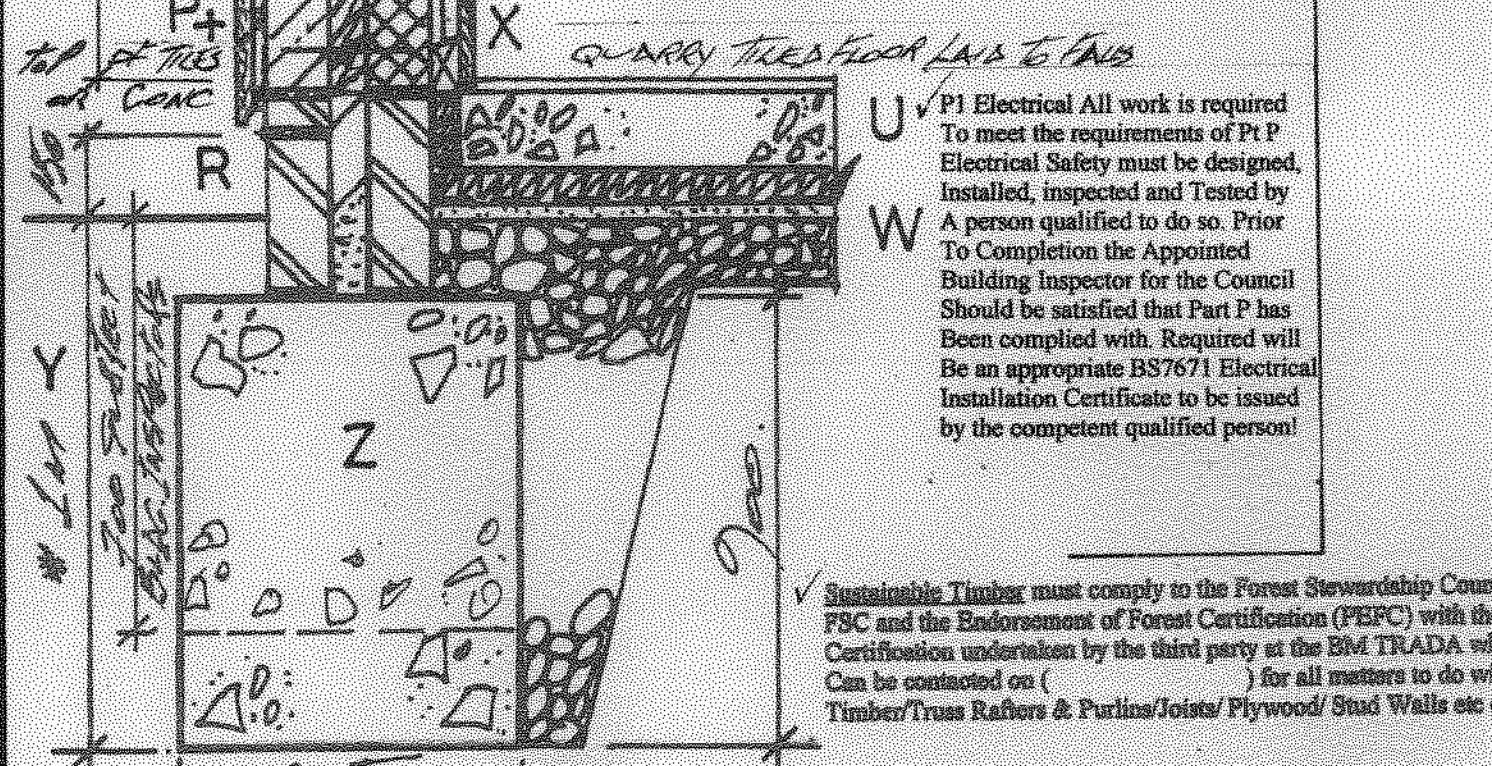 P+
X
QUARRY TILED FLOOR LAID TO FALLS
TILES
CONC
150
R
U
P1 Electrical All work is required
To meet the requirements of Pt P
Electrical Safety must be designed,
Installed, inspected and Tested by
W
A person qualified to do so. Prior
To Completion the Appointed
Building Inspector for the Council
Should be satisfied that Part P has
Been complied with. Required will
Be an appropriate BS7671 Electrical
Installation Certificate to be issued
by the competent qualified person!
Y
Z
700 SUBJECT
900.
Sustainable Timber must comply to the Forest Stewardship Coun
FSC and the Endorsement of Forest Certification (PEFC) with th
Certification undertaken by the third party at the BM TRADA w
Can be contacted on ( ) for all matters to do w
Timber/Truss Rafters & Purlins/Joists/ Plywood/ Stud Walls etc